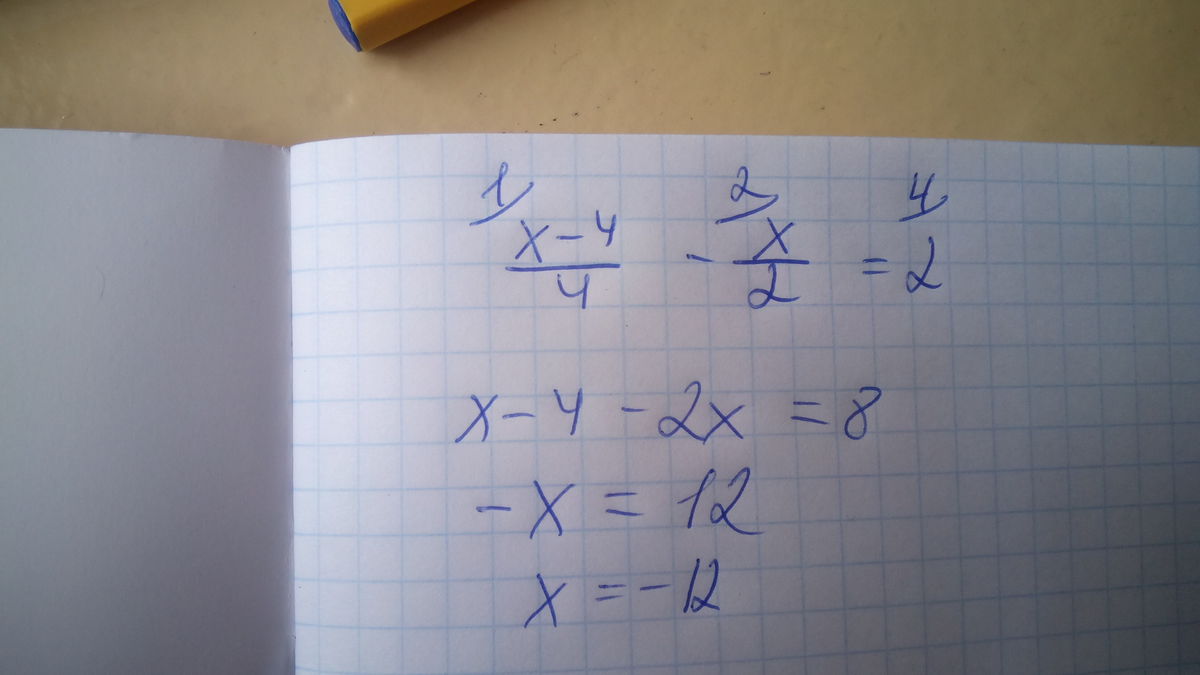 1 2 4
x-4/4 - x/2 = 2
x-4-2x = 8
-x = 12
x = -12